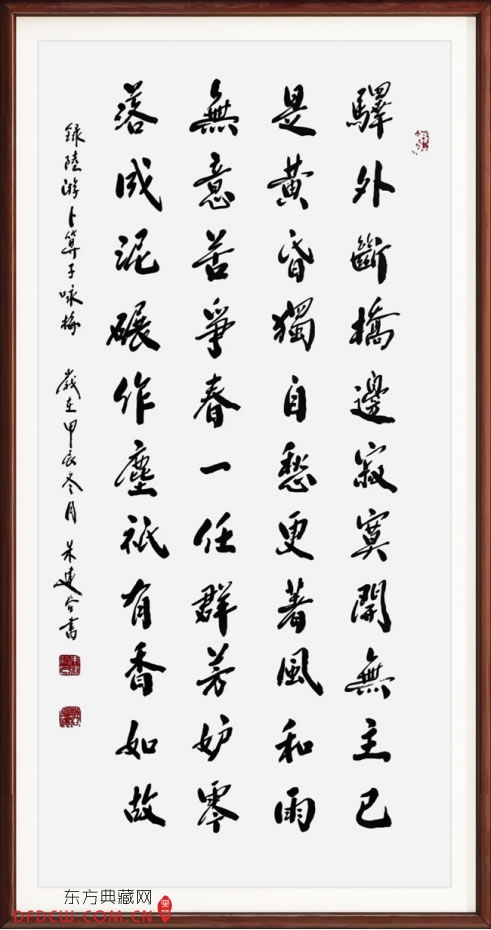 驛外斷橋邊寂寞開無主已
是黃昏獨自愁更著風和雨
無意苦爭春一任群芳妒零
落成泥碾作塵祇有香如故
錄陸游卜算子咏梅 歲在甲辰冬月 朱建合書
东方典藏网
DFDCW.COM.CN